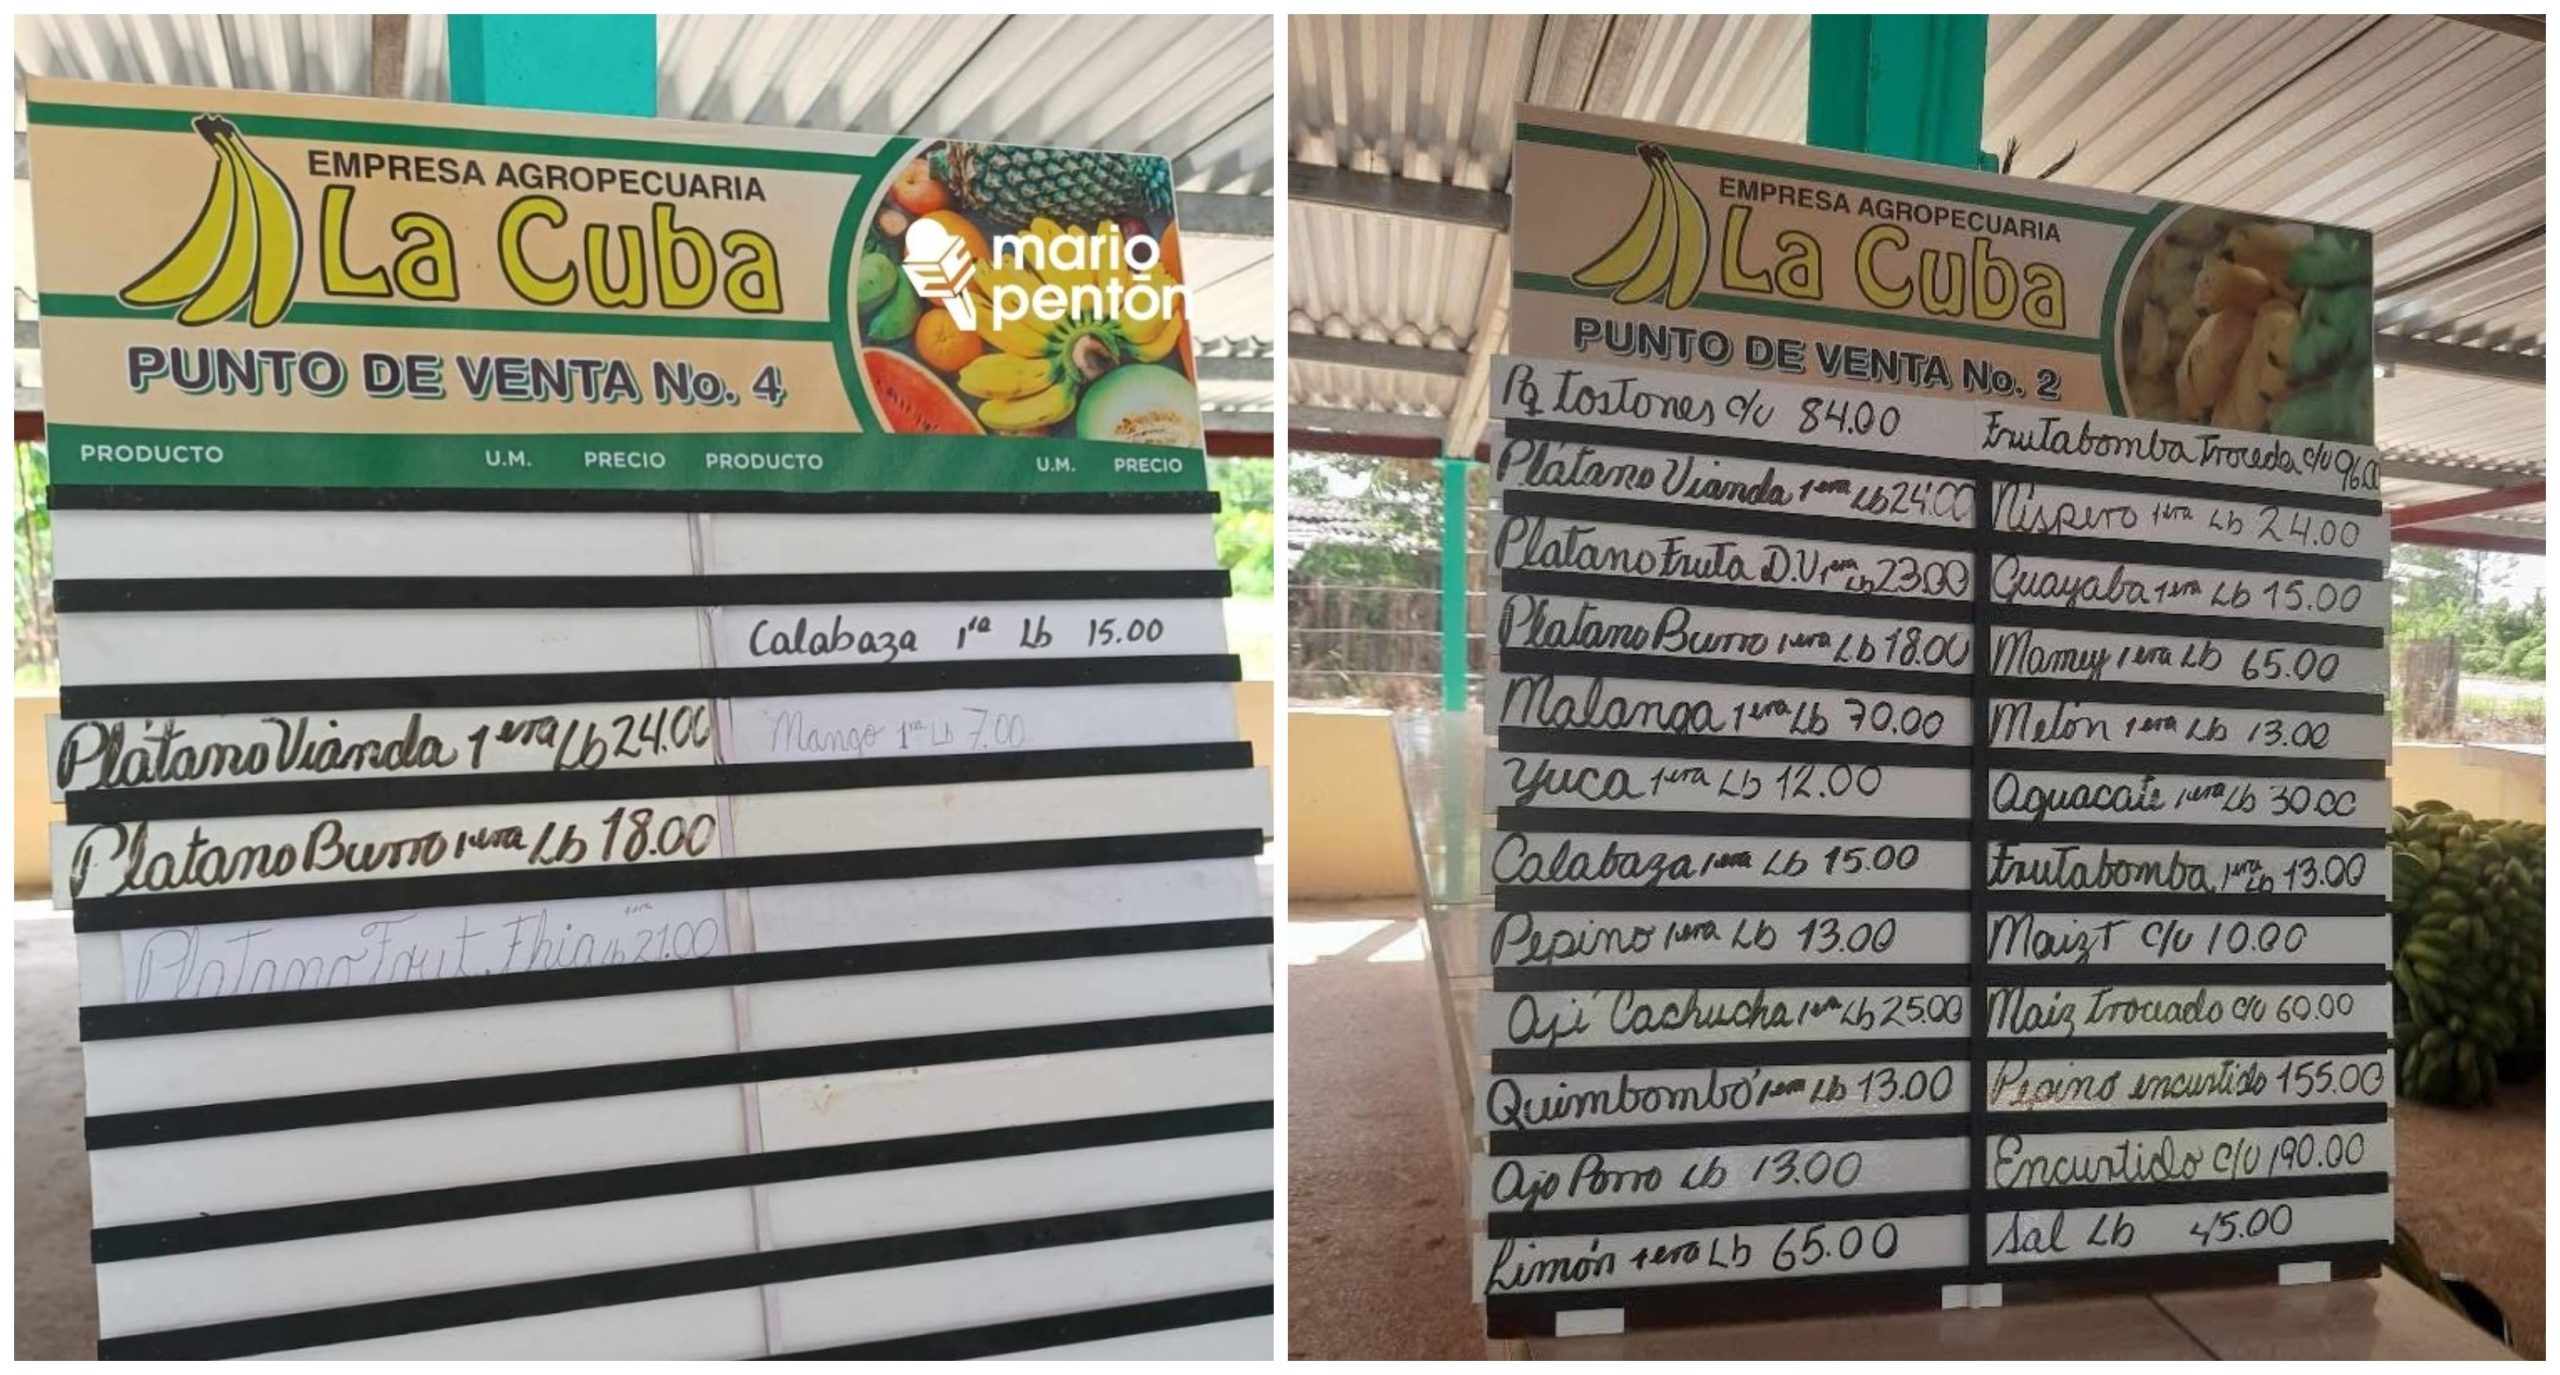 EMPRESA AGROPECUARIA
La Cuba
PUNTO DE VENTA No. 4
mario
pentón
PRODUCTO U.M. PRECIO PRODUCTO U.M. PRECIO
Calabaza 1ra Lb 15.00
Plátano Vianda 1era Lb 24.00
Mango 1ra Lb 7.00
Platano Burro 1era Lb 18.00
Platano Frut. Fhia 1era Lb 21.00
EMPRESA AGROPECUARIA
La Cuba
PUNTO DE VENTA No. 2
Pq tostones c/u 84.00
Frutabomba Troceda c/u 96.00
Plátano Vianda 1era Lb 24.00
Níspero 1era Lb 24.00
Platano Fruta D.V 1era Lb 23.00
Guayaba 1era Lb 15.00
Platano Burro 1era Lb 18.00
Mamey 1era Lb 65.00
Malanga 1era Lb 70.00
Melón 1era Lb 13.00
Yuca 1era Lb 12.00
Aguacate 1era Lb 30.00
Calabaza 1era Lb 15.00
Frutabomba 1era Lb 13.00
Pepino 1era Lb 13.00
Maiz T c/u 10.00
Ají Cachucha 1era Lb 25.00
Maiz Troceado c/u 60.00
Quimbombó 1era Lb 13.00
Pepino encurtido 155.00
Ajo Porro Lb 13.00
Encurtido c/u 190.00
Limón 1era Lb 65.00
Sal Lb 45.00